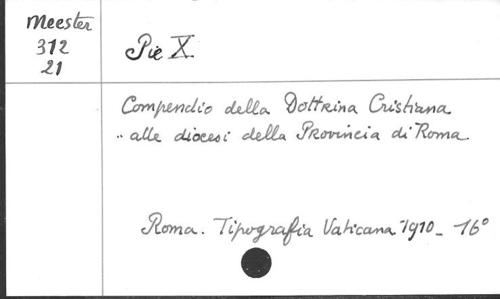 Meester
312
21
Pie X.
Compendio della Dottrina Cristiana
.. alle diocesi della Provincia di Roma.
Roma. Tipografia Vaticana 1910_ 16°